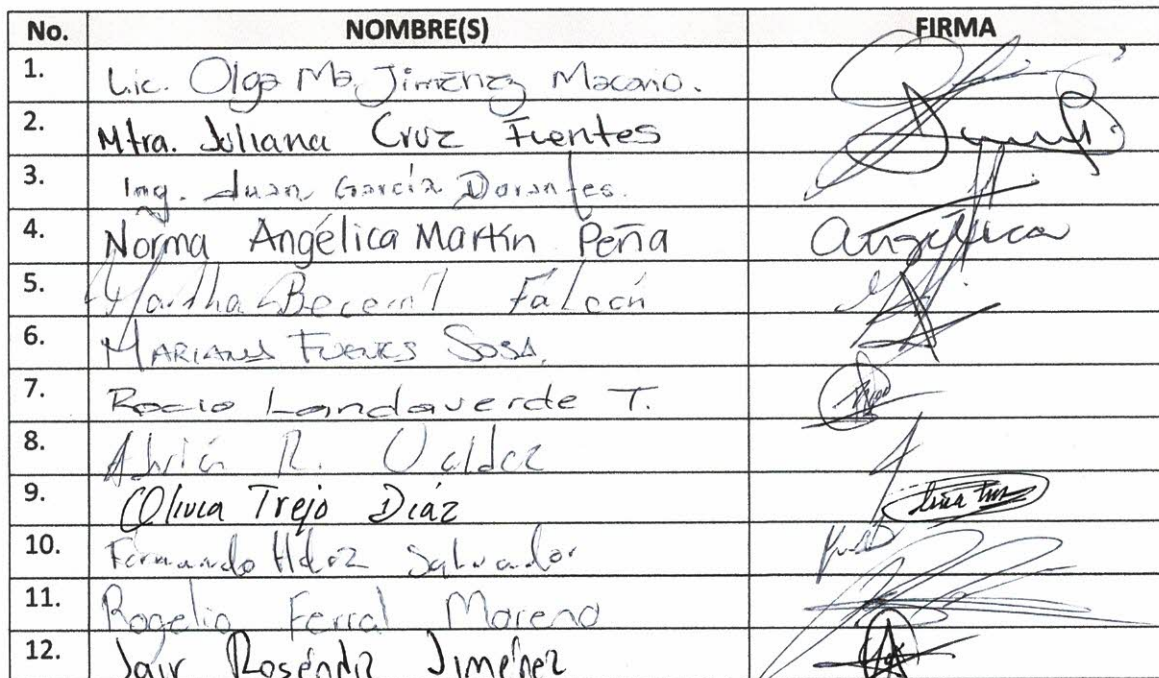 No. NOMBRE(S) FIRMA
1. Lic. Olga Ma. Jiménez Macario.
2. Mtra. Juliana Cruz Fuentes
3. Ing. Juan García Dorantes.
4. Norma Angélica Martín Peña Angélica
5. Martha Becerril Falcón
6. MARIANA FUENTES SOSA.
7. Rocio Landaverde T.
8. Adrián R. Valdez
9. Olivia Trejo Diáz
10. Fernando Hdez Salvador
11. Rogelio Ferral Moreno
12. Jair Roséndiz Jiménez